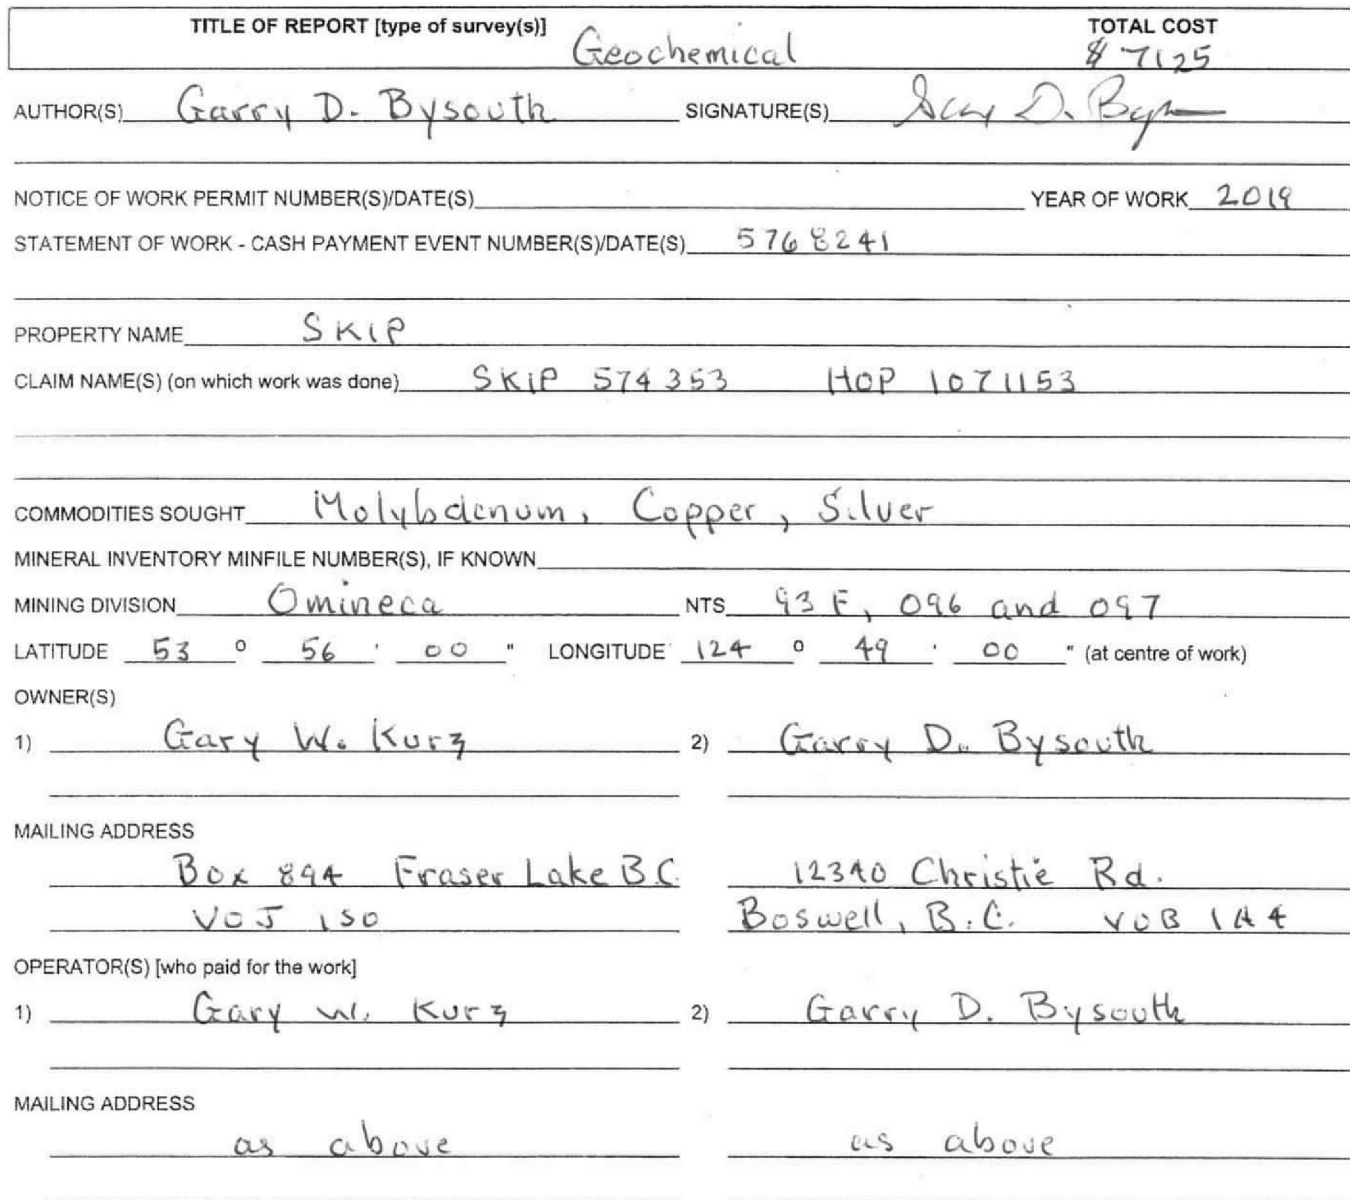 TITLE OF REPORT [type of survey(s)] Geochemical TOTAL COST $ 7125
AUTHOR(S) Garry D. Bysouth SIGNATURE(S)
NOTICE OF WORK PERMIT NUMBER(S)/DATE(S) YEAR OF WORK 2019
STATEMENT OF WORK - CASH PAYMENT EVENT NUMBER(S)/DATE(S) 5768241
PROPERTY NAME SKIP
CLAIM NAME(S) (on which work was done) SKIP 574353 HOP 1071153
COMMODITIES SOUGHT Molybdenum, Copper, Silver
MINERAL INVENTORY MINFILE NUMBER(S), IF KNOWN
MINING DIVISION Omineca NTS 93 F, 096 and 097
LATITUDE 53 ° 56 ' 00 " LONGITUDE 124 ° 49 ' 00 " (at centre of work)
OWNER(S)
1) Gary W. Kurz 2) Garry D. Bysouth
MAILING ADDRESS
Box 894 Fraser Lake B.C. 12340 Christie Rd.
V0J 1S0 Boswell, B.C. V0B 1A4
OPERATOR(S) [who paid for the work]
1) Gary W. Kurz 2) Garry D. Bysouth
MAILING ADDRESS
as above as above